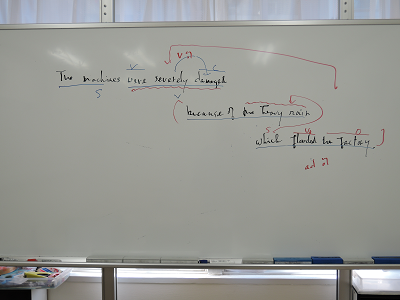 V
The machines were severely damaged
S
C
(because of the heavy rain
S V O
which flooded the factory.]